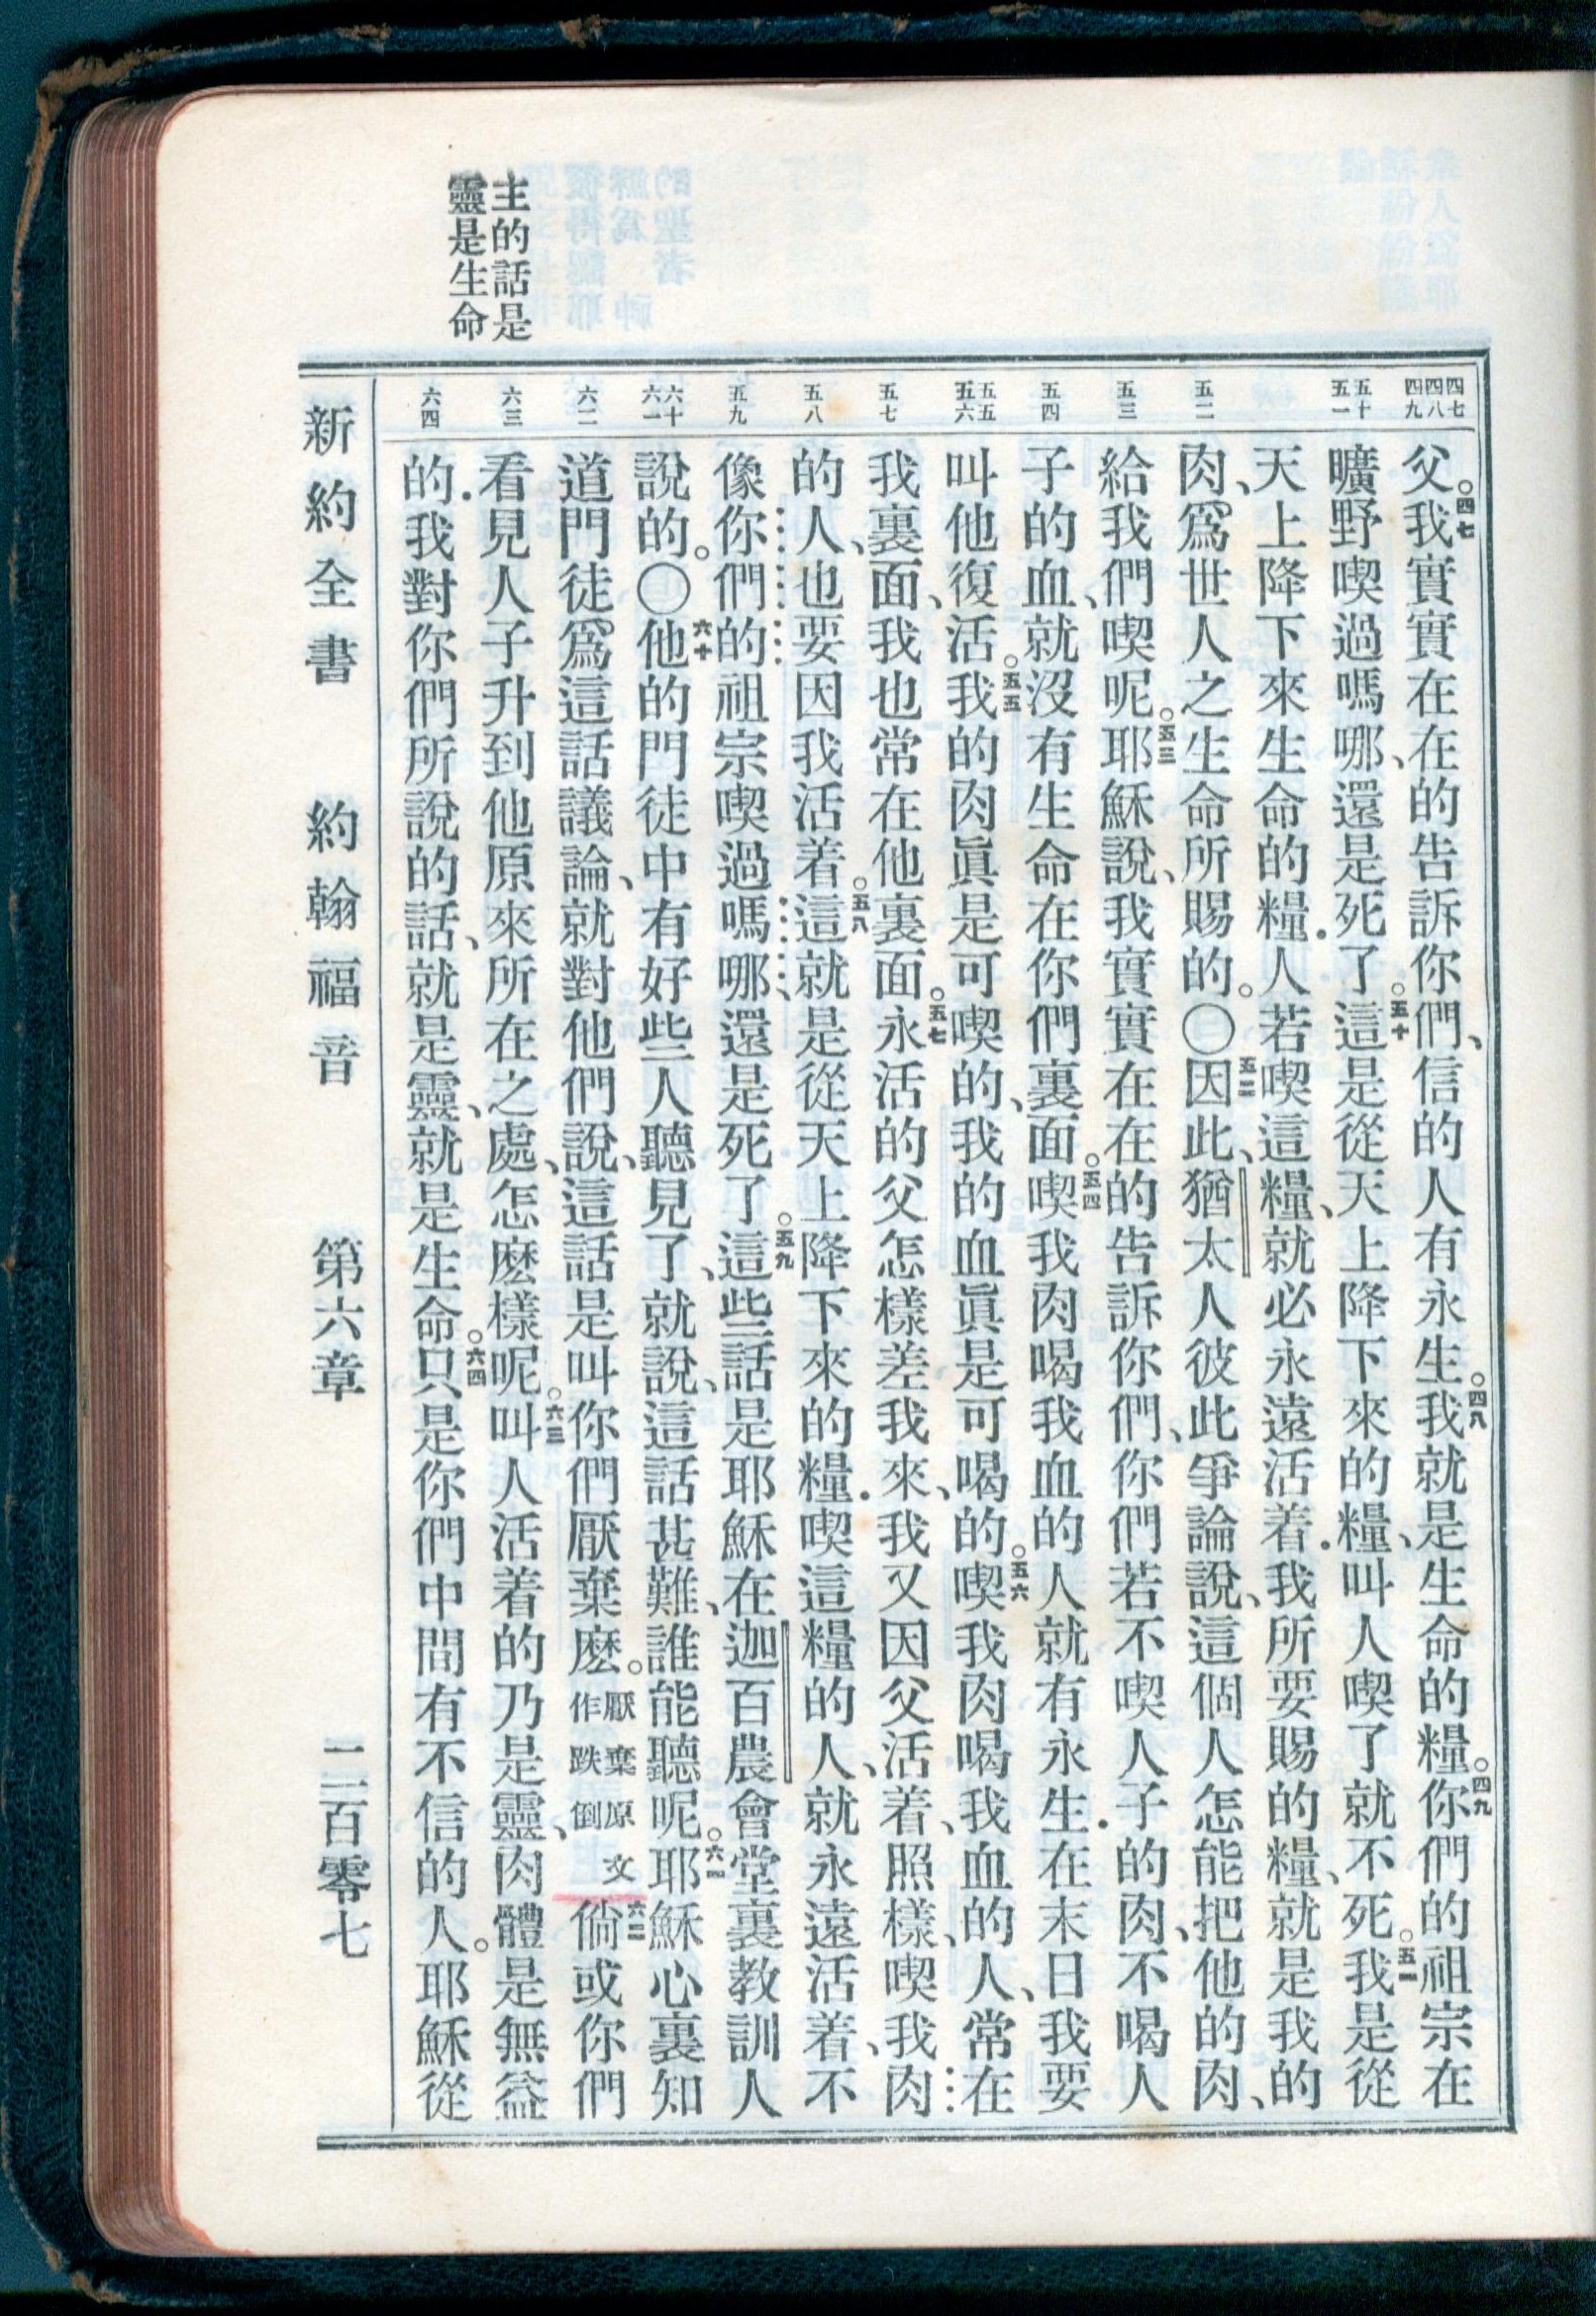 主的話是
靈是生命
四七
四八
四九
五十
五一
五二
五三
五四
五五
五六
五七
五八
五九
六十
六一
六二
六三
六四
父。四七我實實在在的告訴你們、信的人有永生。四八我就是生命的糧。四九你們的祖宗在
曠野喫過嗎哪、還是死了。五十這是從天上降下來的糧、叫人喫了就不死。五一我是從
天上降下來生命的糧．人若喫這糧、就必永遠活着．我所要賜的糧、就是我的
肉、爲世人之生命所賜的。〇五二因此、猶太人彼此爭論說、這個人怎能把他的肉、
給我們喫呢。五三耶穌說、我實實在在的告訴你們、你們若不喫人子的肉、不喝人
子的血、就沒有生命在你們裏面。五四喫我肉喝我血的人就有永生．在末日我要
叫他復活。五五我的肉眞是可喫的、我的血眞是可喝的。五六喫我肉喝我血的人、常在
我裏面、我也常在他裏面。五七永活的父怎樣差我來、我又因父活着、照樣、喫我肉
的人、也要因我活着。五八這就是從天上降下來的糧．喫這糧的人、就永遠活着、不
像你們的祖宗喫過嗎哪、還是死了。五九這些話是耶穌在迦百農會堂裏教訓人
說的。〇六十他的門徒中有好些人聽見了、就說、這話甚難、誰能聽呢。六一耶穌心裏知
道門徒爲這話議論、就對他們說、這話是叫你們厭棄麽。厭棄原文作跌倒六二倘或你們
看見人子升到他原來所在之處、怎麽樣呢。六三叫人活着的乃是靈、肉體是無益
的．我對你們所說的話、就是靈、就是生命。六四只是你們中間有不信的人。耶穌從
新約全書　約翰福音　第六章　二百零七